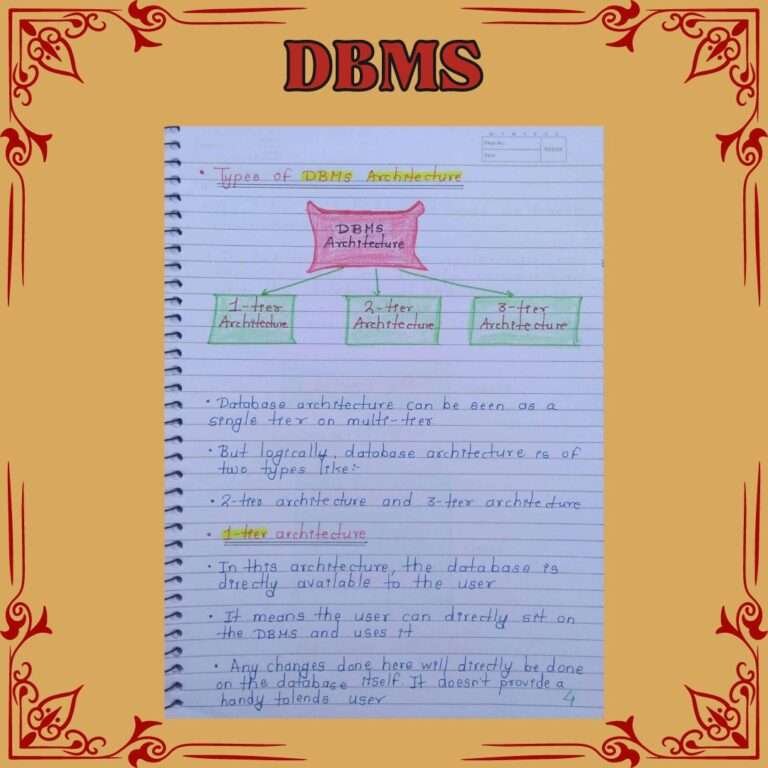 DBMS
• Types of DBMS Architecture
DBMS
Architecture
1-tier
Architecture
2-tier
Architecture
3-tier
Architecture
• Database architecture can be seen as a
single tier on multi-tier
• But logically, database architecture is of
two types like:-
• 2-tier architecture and 3-tier architecture
• 1-tier architecture
• In this architecture, the database is
directly available to the user
• It means the user can directly sit on
the DBMS and uses it
• Any changes done here will directly be done
on the database itself. It doesn't provide a
handy tolends user
4